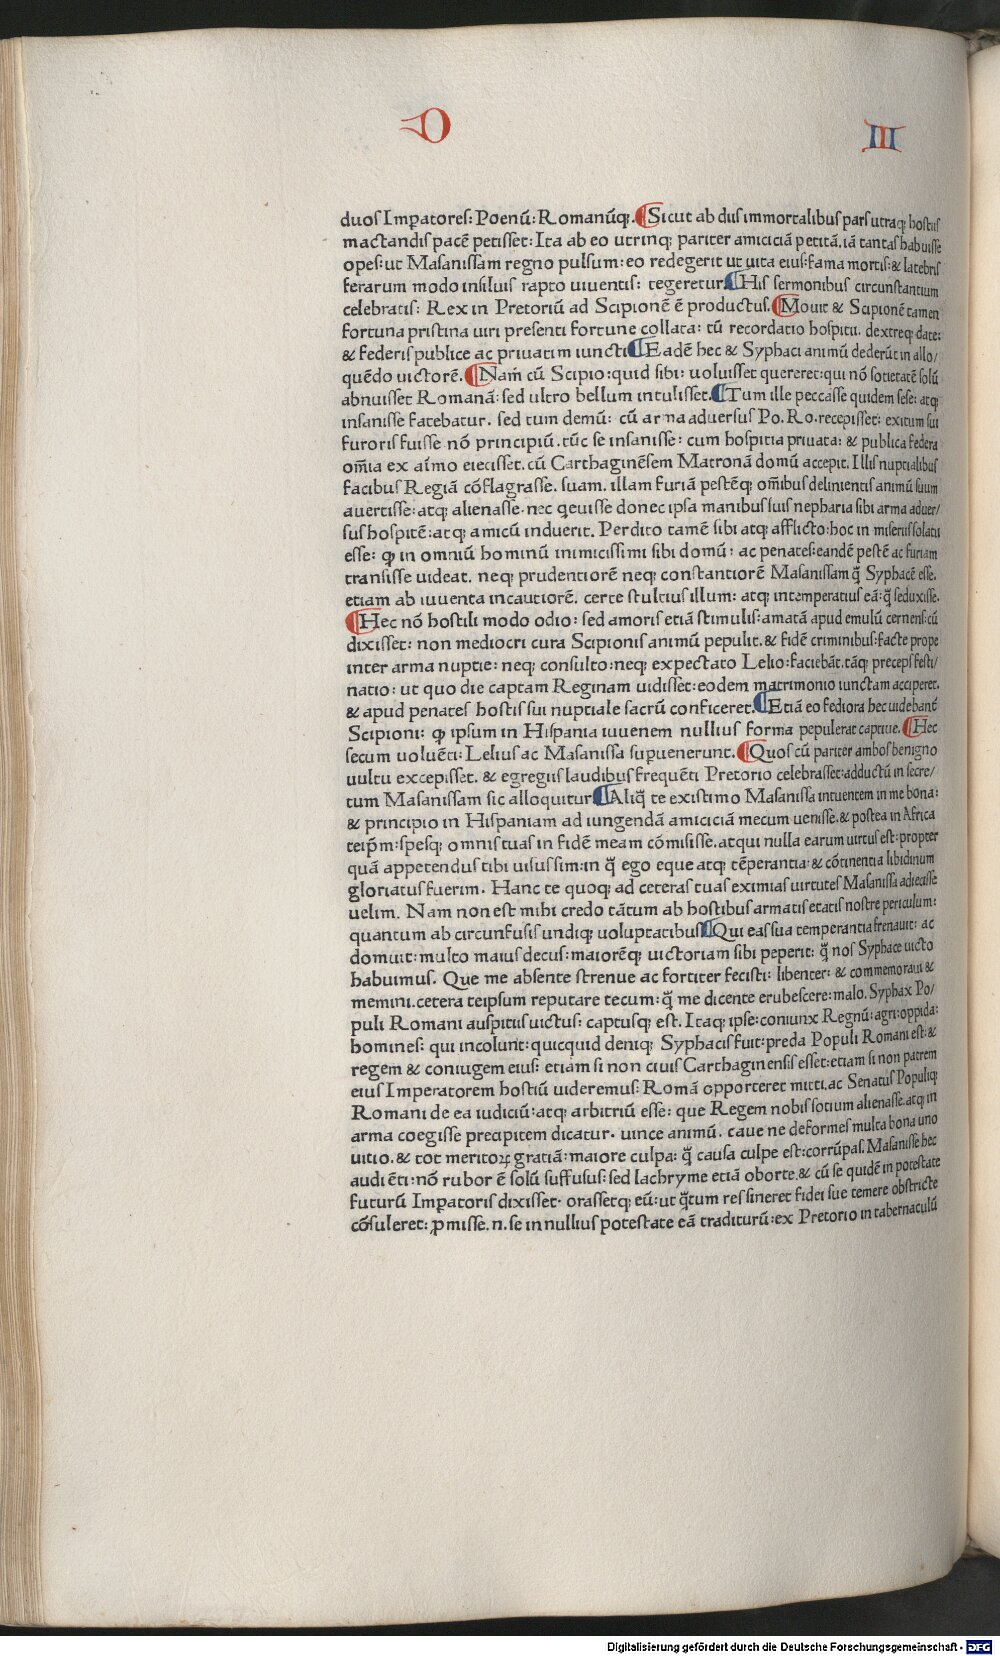 D III
duos Imꝑatores: Poenū: Romanūqꝫ. Sicut ab diis immortalibus pars utraqꝫ hostiis
mactandis pacē petisset: Ita ab eo utrinqꝫ pariter amiciciā petitā. iā tantas habuisse
opes: ut Masanissam regno pulsum: eo redegerit ut uita eius: fama mortis: & latebris
ferarum modo in siluis rapto uiuentis: tegeretur. His sermonibus circunstantium
celebratis: Rex in Pretoriū ad Scipionē ē productus. Mouit & Scipionē tamen
fortuna pristina uiri presenti fortune collata: tū recordatio hospitii. dextreqꝫ date:
& federis publice ac priuatim iuncti. Eadē hec & Syphaci animū dederūt in allo/
quēdo uictorē. Nam̄ cū Scipio: quid sibi: uoluisset quereret: qui nō societatē solū
abnuisset Romanā: sed ultro bellum intulisset. Tum ille peccasse quidem sese: atqꝫ
insanisse fatebatur. sed tum demū: cū arma aduersus Po. Ro. recepisset: exitum sui
furoris fuisse nō principiū. tūc se insanisse: cum hospitia priuata: & publica federa
om̄ia ex aīmo eiecisset. cū Carthaginēsem Matronā domū accepit. Illis nuptialibus
facibus Regiā cōflagrasse. suam. illam furiā pestēqꝫ om̄ibus delinientis animū suum
auertisse: atqꝫ alienasse. nec q̄euisse donec ipsa manibus suis nepharia sibi arma aduer/
sus hospitē: atqꝫ amicū induerit. Perdito tamē sibi atqꝫ afflicto: hoc in miseriis solatii
esse: ꝙ in omniū hominū inimicissimi sibi domū: ac penates: eandē pestē ac furiam
transisse uideat. neqꝫ prudentiorē neqꝫ constantiorē Masanissam q̄ Syphacē esse.
etiam ab iuuenta incautiorē. certe stultius illum: atqꝫ intemperatius eā: q̄ se duxisse.
Hec nō hostili modo odio: sed amoris etiā stimulis: amatā apud emulū cernens: cū
dixisset: non mediocri cura Scipionis animū pepulit. & fidē criminibus: facte prope
inter arma nuptie: neqꝫ consulto: neqꝫ expectato Lelio: faciebāt. tāqꝫ preceps festi/
natio: ut quo die captam Reginam uidisset: eodem matrimonio iunctam acciperet.
& apud penates hostis sui nuptiale sacrū conficeret. Etiā eo fediora hec uidebant̄
Scipioni: ꝙ ipsum in Hispania iuuenem nullius forma pepulerat captiue. Hec
secum voluēti: Lelius ac Masanissa suꝑuenerunt. Quos cū pariter ambos benigno
uultu excepisset. & egregiis laudibus frequēti Pretorio celebrasset: adductū in secre/
tum Masanissam sic alloquitur. Aliq̄ te existimo Masanissa intuentem in me bona:
& principio in Hispaniam ad iungendā amiciciā mecum uenisse. & postea in Africa
teip̄m: spesqꝫ omnis tuas in fidē meam cōmisisse. atqui nulla earum uirtus est: propter
quā appetendus tibi uisus sim: in q̄ ego eque atqꝫ tēperantia: & cōtinentia libidinum
gloriatus fuerim. Hanc te quoqꝫ ad ceteras tuas eximias uirtutes Masanissa adiecisse
uelim. Nam non est mihi credo tātum ab hostibus armatis etatis nostre periculum:
quantum ab circunfusis undiqꝫ uoluptatibus. Qui eas sua temperantia frenauit: ac
domuit: multo maius decus: maiorēqꝫ uictoriam sibi peperit: q̄ nos Syphace uicto
habuimus. Que me absente strenue ac fortiter fecisti: libenter: & commemoraui &
memini. cetera teipsum reputare tecum: q̄ me dicente erubescere: malo. Syphax Po/
puli Romani auspitiis uictus: captusqꝫ est. Itaqꝫ ipse: coniunx Regnū: agri: oppida:
homines: qui incolunt: quicquid deniqꝫ Syphacis fuit: preda Populi Romani est: &
regem & coniugem eius: etiam si non ciuis Carthaginensis esset: etiam si non patrem
eius Imperatorem hostiū uideremus: Romā opporteret mitti. ac Senatus Populiqꝫ
Romani de ea iudiciū: atqꝫ arbitriū esse: que Regem nobis socium alienasse. atqꝫ in
arma coegisse precipitem dicatur. uince animū. caue ne deformes multa bona uno
uitio. & tot meritoꝝ gratiā: maiore culpa: q̄ causa culpe est: corrūpas. Masanisse hec
audiēti: nō rubor ē solū suffusus: sed lachryme etiā oborte. & cū se quidē in potestate
futurū Imꝑatoris dixisset. orassetqꝫ eū: ut q̄tum res sineret fidei sue temere obstricte
cōsuleret: ꝓmisse. n. se in nullius potestate eā traditurū: ex Pretorio in tabernaculū
Digitalisierung gefördert durch die Deutsche Forschungsgemeinschaft - DFG